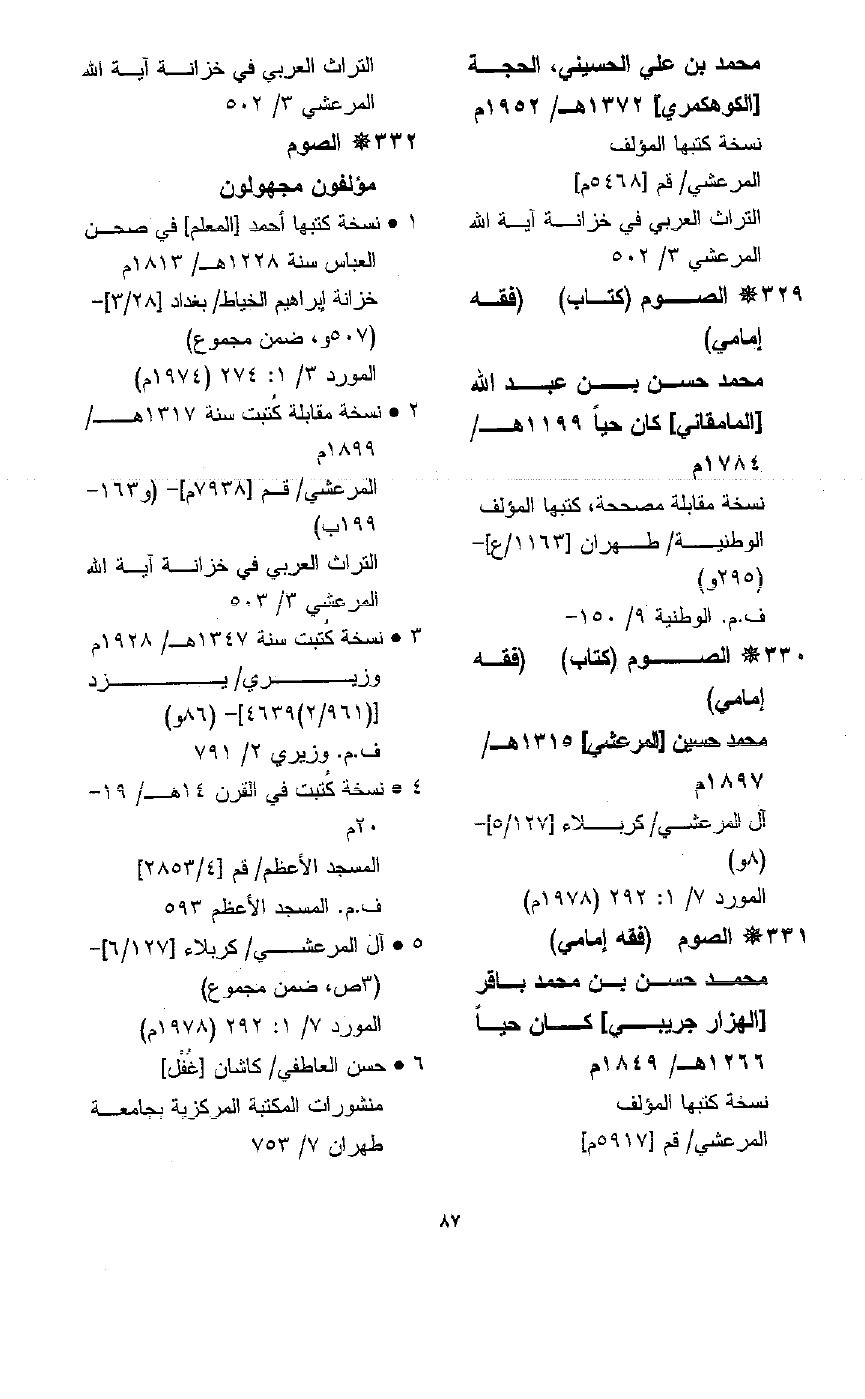 محمد بن علي الحسيني، الحجـة
[الكوهكمري] ١٣٧٢هـ/ ١٩٥٢م
نسخة كتبها المؤلف
المرعشي/ قم [٥٤٦٨م]
التراث العربي في خزانـة آيـة الله
المرعشي ٣/ ٥٠٢
٣٢٩* الصـوم (كتـاب) (فقـه
إمامي)
محمد حسـن بـن عبـد الله
[المامقاني] كان حياً ١١٩٩هـ/
١٧٨٤م
نسخة مقابلة مصححة، كتبها المؤلف
الوطنيـة/ طـهران [١١٦٣/ع]-
(٢٩٥و)
ف.م. الوطنية ٩/ ١٥٠-
٣٣٠* الصـوم (كتاب) (فقـه
إمامي)
محمد حسين [المرعشي] ١٣١٥هـ/
١٨٩٧م
آل المرعشـي/ كربـلاء [٥/١٢٧]-
(٨و)
المورد ٧/ ١: ٢٩٢ (١٩٧٨م)
٣٣١* الصوم (فقه إمامي)
محمـد حسـن بـن محمد بـاقر
[الهزار جريبـي] كـان حيـاً
١٢٦٦هـ/ ١٨٤٩م
نسخة كتبها المؤلف
المرعشي/ قم [٥٩١٧م]
التراث العربي في خزانـة آيـة الله
المرعشي ٣/ ٥٠٢
٣٣٢* الصوم
مؤلفون مجهولون
١ • نسخة كتبها أحمد [المعلم] في صحـن
العباس سنة ١٢٢٨هـ/ ١٨١٣م
خزانة إبراهيم الخياط/ بغداد [٣/٢٨]-
(٥٠٧و، ضمن مجموع)
المورد ٣/ ١: ٢٧٤ (١٩٧٤م)
٢ • نسخة مقابلة كُتبت سنة ١٣١٧هـ/
١٨٩٩م
المرعشي/ قـم [٧٩٣٨م]- (و١٦٣-
١٩٩ب)
التراث العربي في خزانـة آيـة الله
المرعشي ٣/ ٥٠٣
٣ • نسخة كُتبت سنة ١٣٤٧هـ/ ١٩٢٨م
وزيـري/ يـزد
[(٢/٩٦١)٤٦٣٩]- (٨٦و)
ف.م. وزيري ٢/ ٧٩١
٤ • نسخة كُتبت في القرن ١٤هـ/ ١٩-
٢٠م
المسجد الأعظم/ قم [٢٨٥٣/٤]
ف.م. المسجد الأعظم ٥٩٣
٥ • آل المرعشـي/ كربلاء [٦/١٢٧]-
(٣ص، ضمن مجموع)
المورد ٧/ ١: ٢٩٢ (١٩٧٨م)
٦ • حسن العاطفي/ كاشان [غُفْل]
منشورات المكتبة المركزية بجامعـة
طهران ٧/ ٧٥٣
٨٧